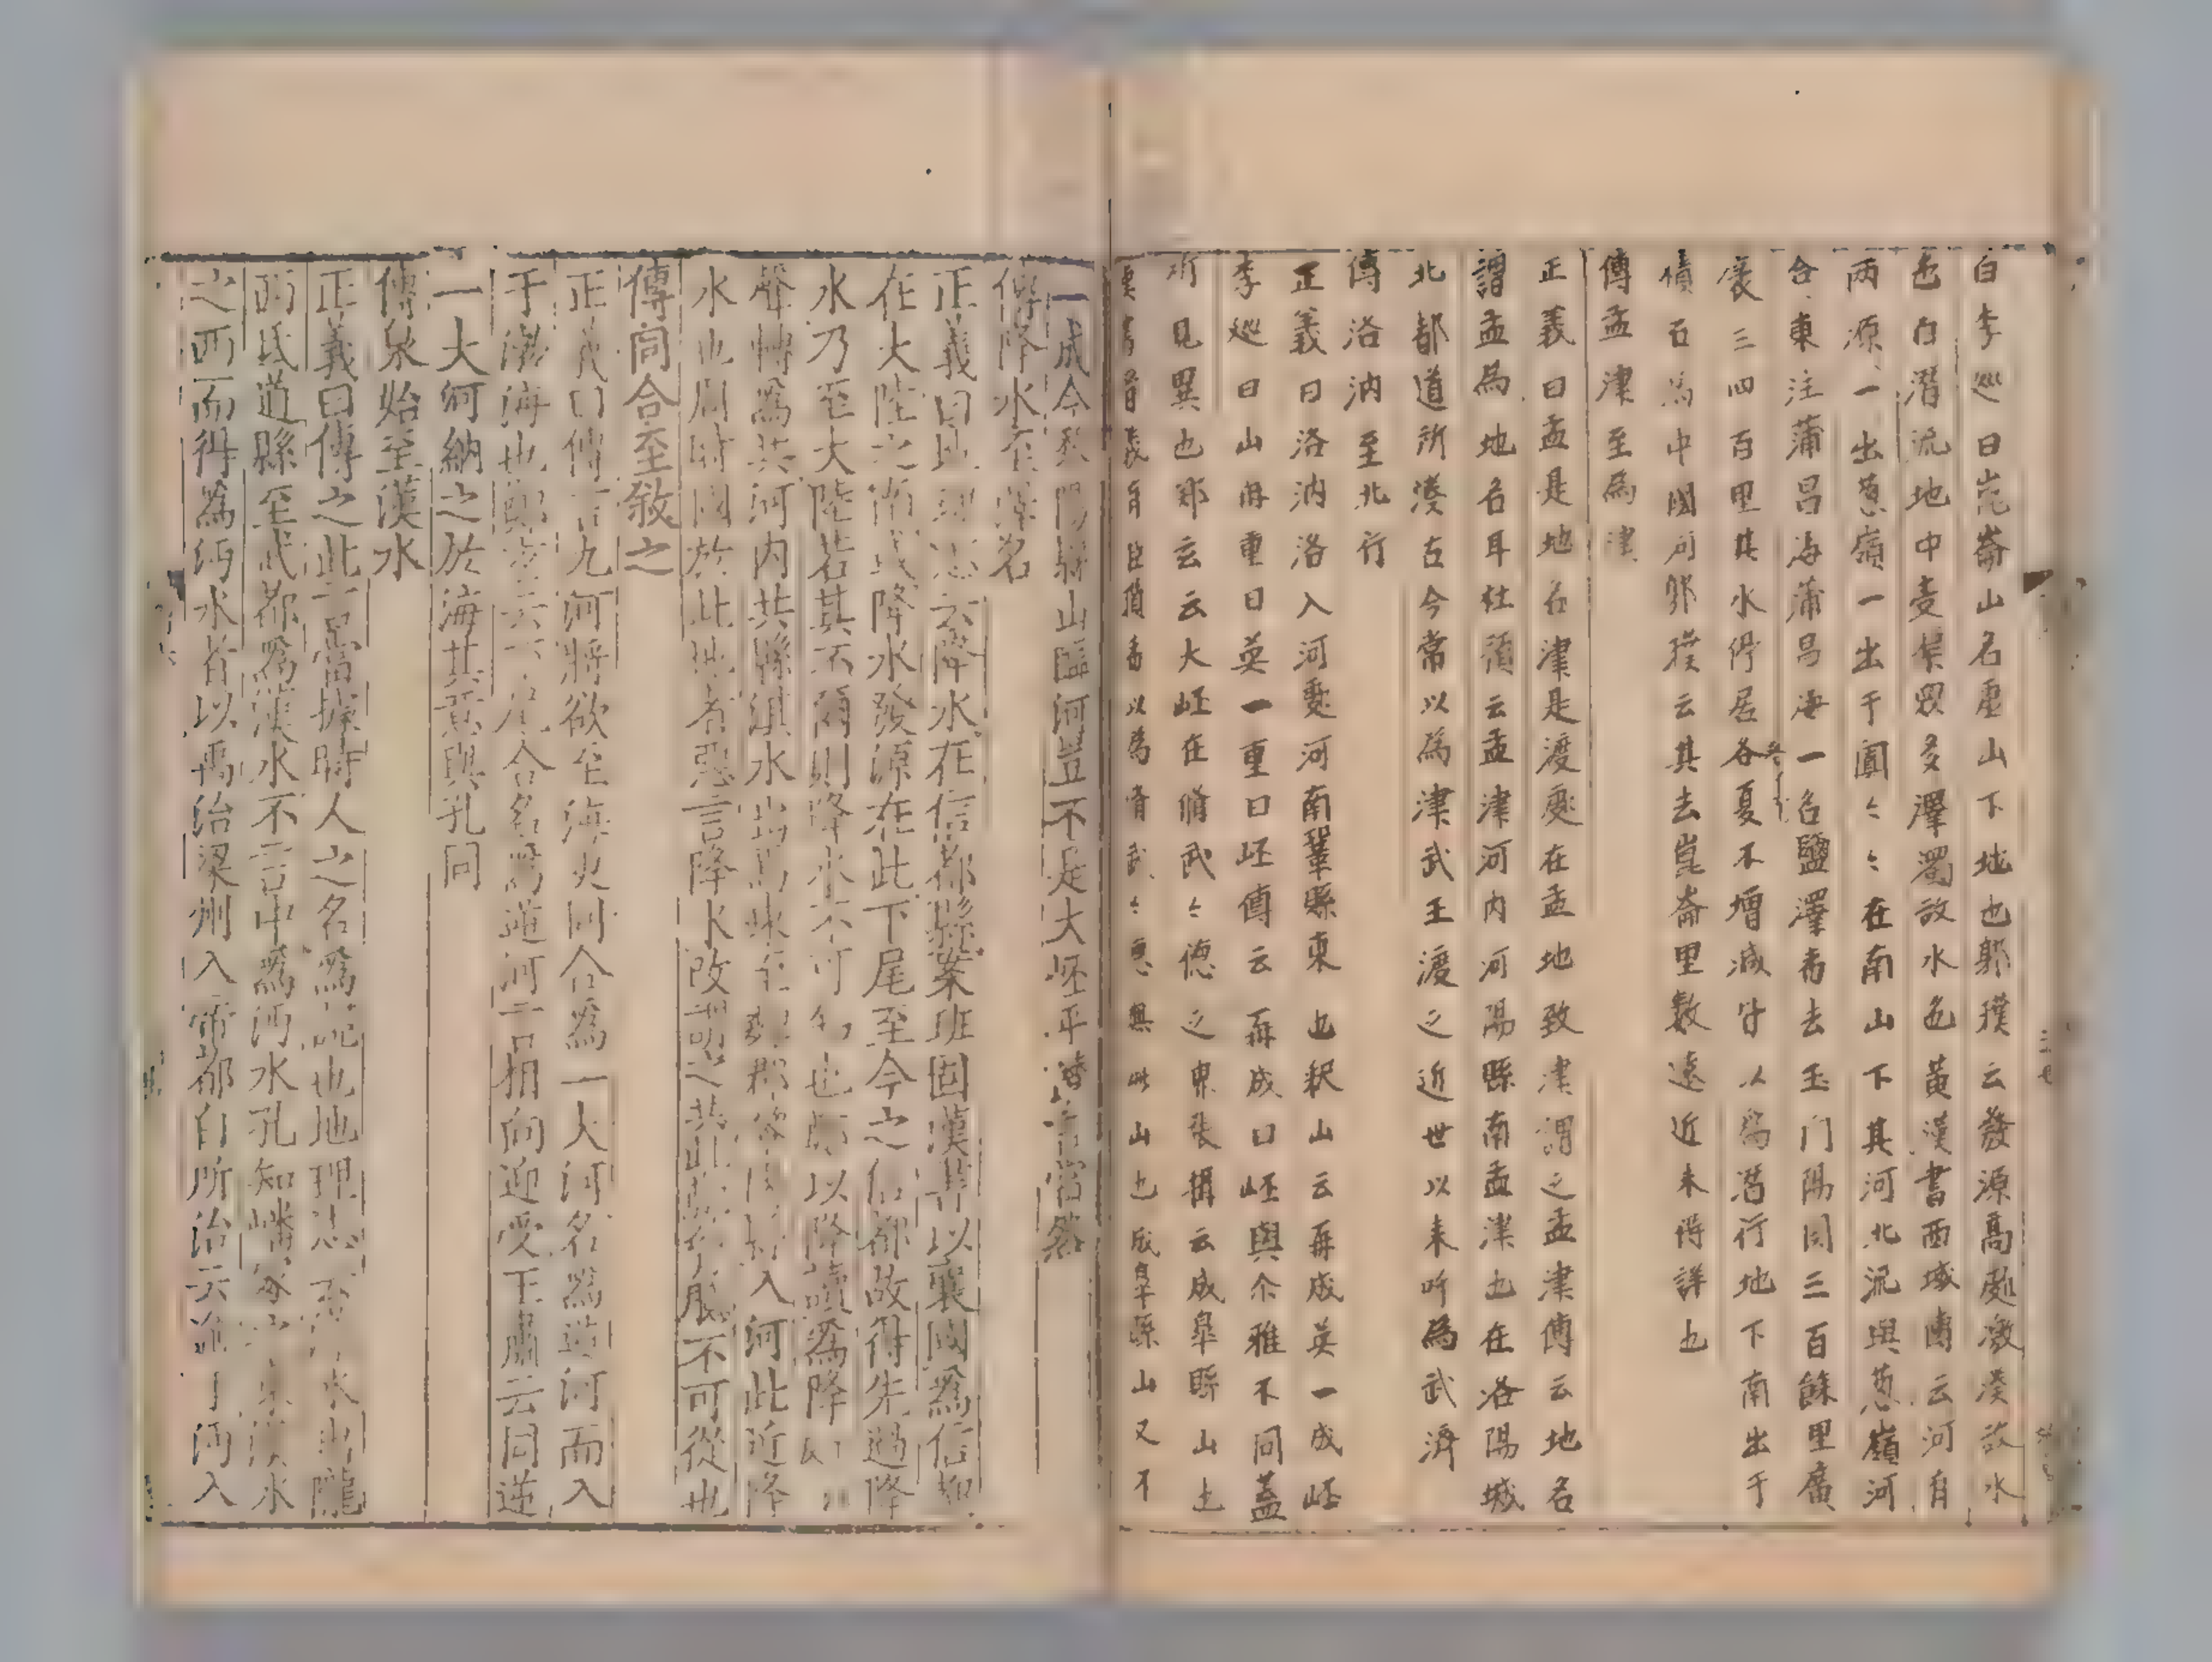 白李巡曰崑崙山名虛山下地也郭璞云發源高處激湊故水
色白潛流地中衆渠衆多渾濁故水色黃漢書西域傳云河有
兩源一出葱嶺一出于闐〻〻在南山下其河北流與葱嶺河
合東注蒲昌海蒲昌海一名鹽澤者去玉门陽関三百餘里廣
袤三四百里其水停居冬夏不增減皆以為潛行地下南出于
積石為中國河郭璞云其去崑崙里數遠近未得詳也
傳孟津至為津
正義曰孟是地名津是渡處在孟地致津謂之孟津傳云地名
謂孟為地名耳杜預云孟津河內河陽縣南孟津也在洛陽城
北都道所湊古今常以為津武王渡之近世以來呼為武濟
傳洛汭至北行
正義曰洛汭洛入河處河南鞏縣東也釈山云再成英一成岯
李巡曰山再重曰英一重曰岯傳云再成曰岯與尒雅不同蓋
所見異也鄭云云大岯在脩武〻德之東張揖云成皋縣山也
漢書音義有臣瓚者以為脩武〻德無此山也成皋縣山又不
一成今黎陽縣山臨河豈不是大岯乎瓚言當然
傳降水至澤名
正義曰地理志云降水在信都縣案班固漢書以襄國為信都
在大陸之南或降水發源在此下尾至今之信都故得先過降
水乃至大陸若其不爾則降水不可知也鄭以降讀為降
聲轉為共河內共縣淇水出焉東至魏郡黎陽入河此近降
水也周時國於此地者惡言降水改謂之共此鄭胸臆不可從也
傳同合至敘之
正義曰傳言九河將欲至海更同合為一大河名為逆河而入
于渤海也鄭玄云下尾合名為逆河言相向迎受王肅云同逆
一大河納之於海其意與孔同
傳泉始至漢水
正義曰傳之此言當據時人之名為說也地理志云漾水出隴
西氐道縣至武都為漢水不言中為沔水孔知嶓冢之東漢水
之西而得為沔水者以禹治梁州入帝都白所治云逾于沔入